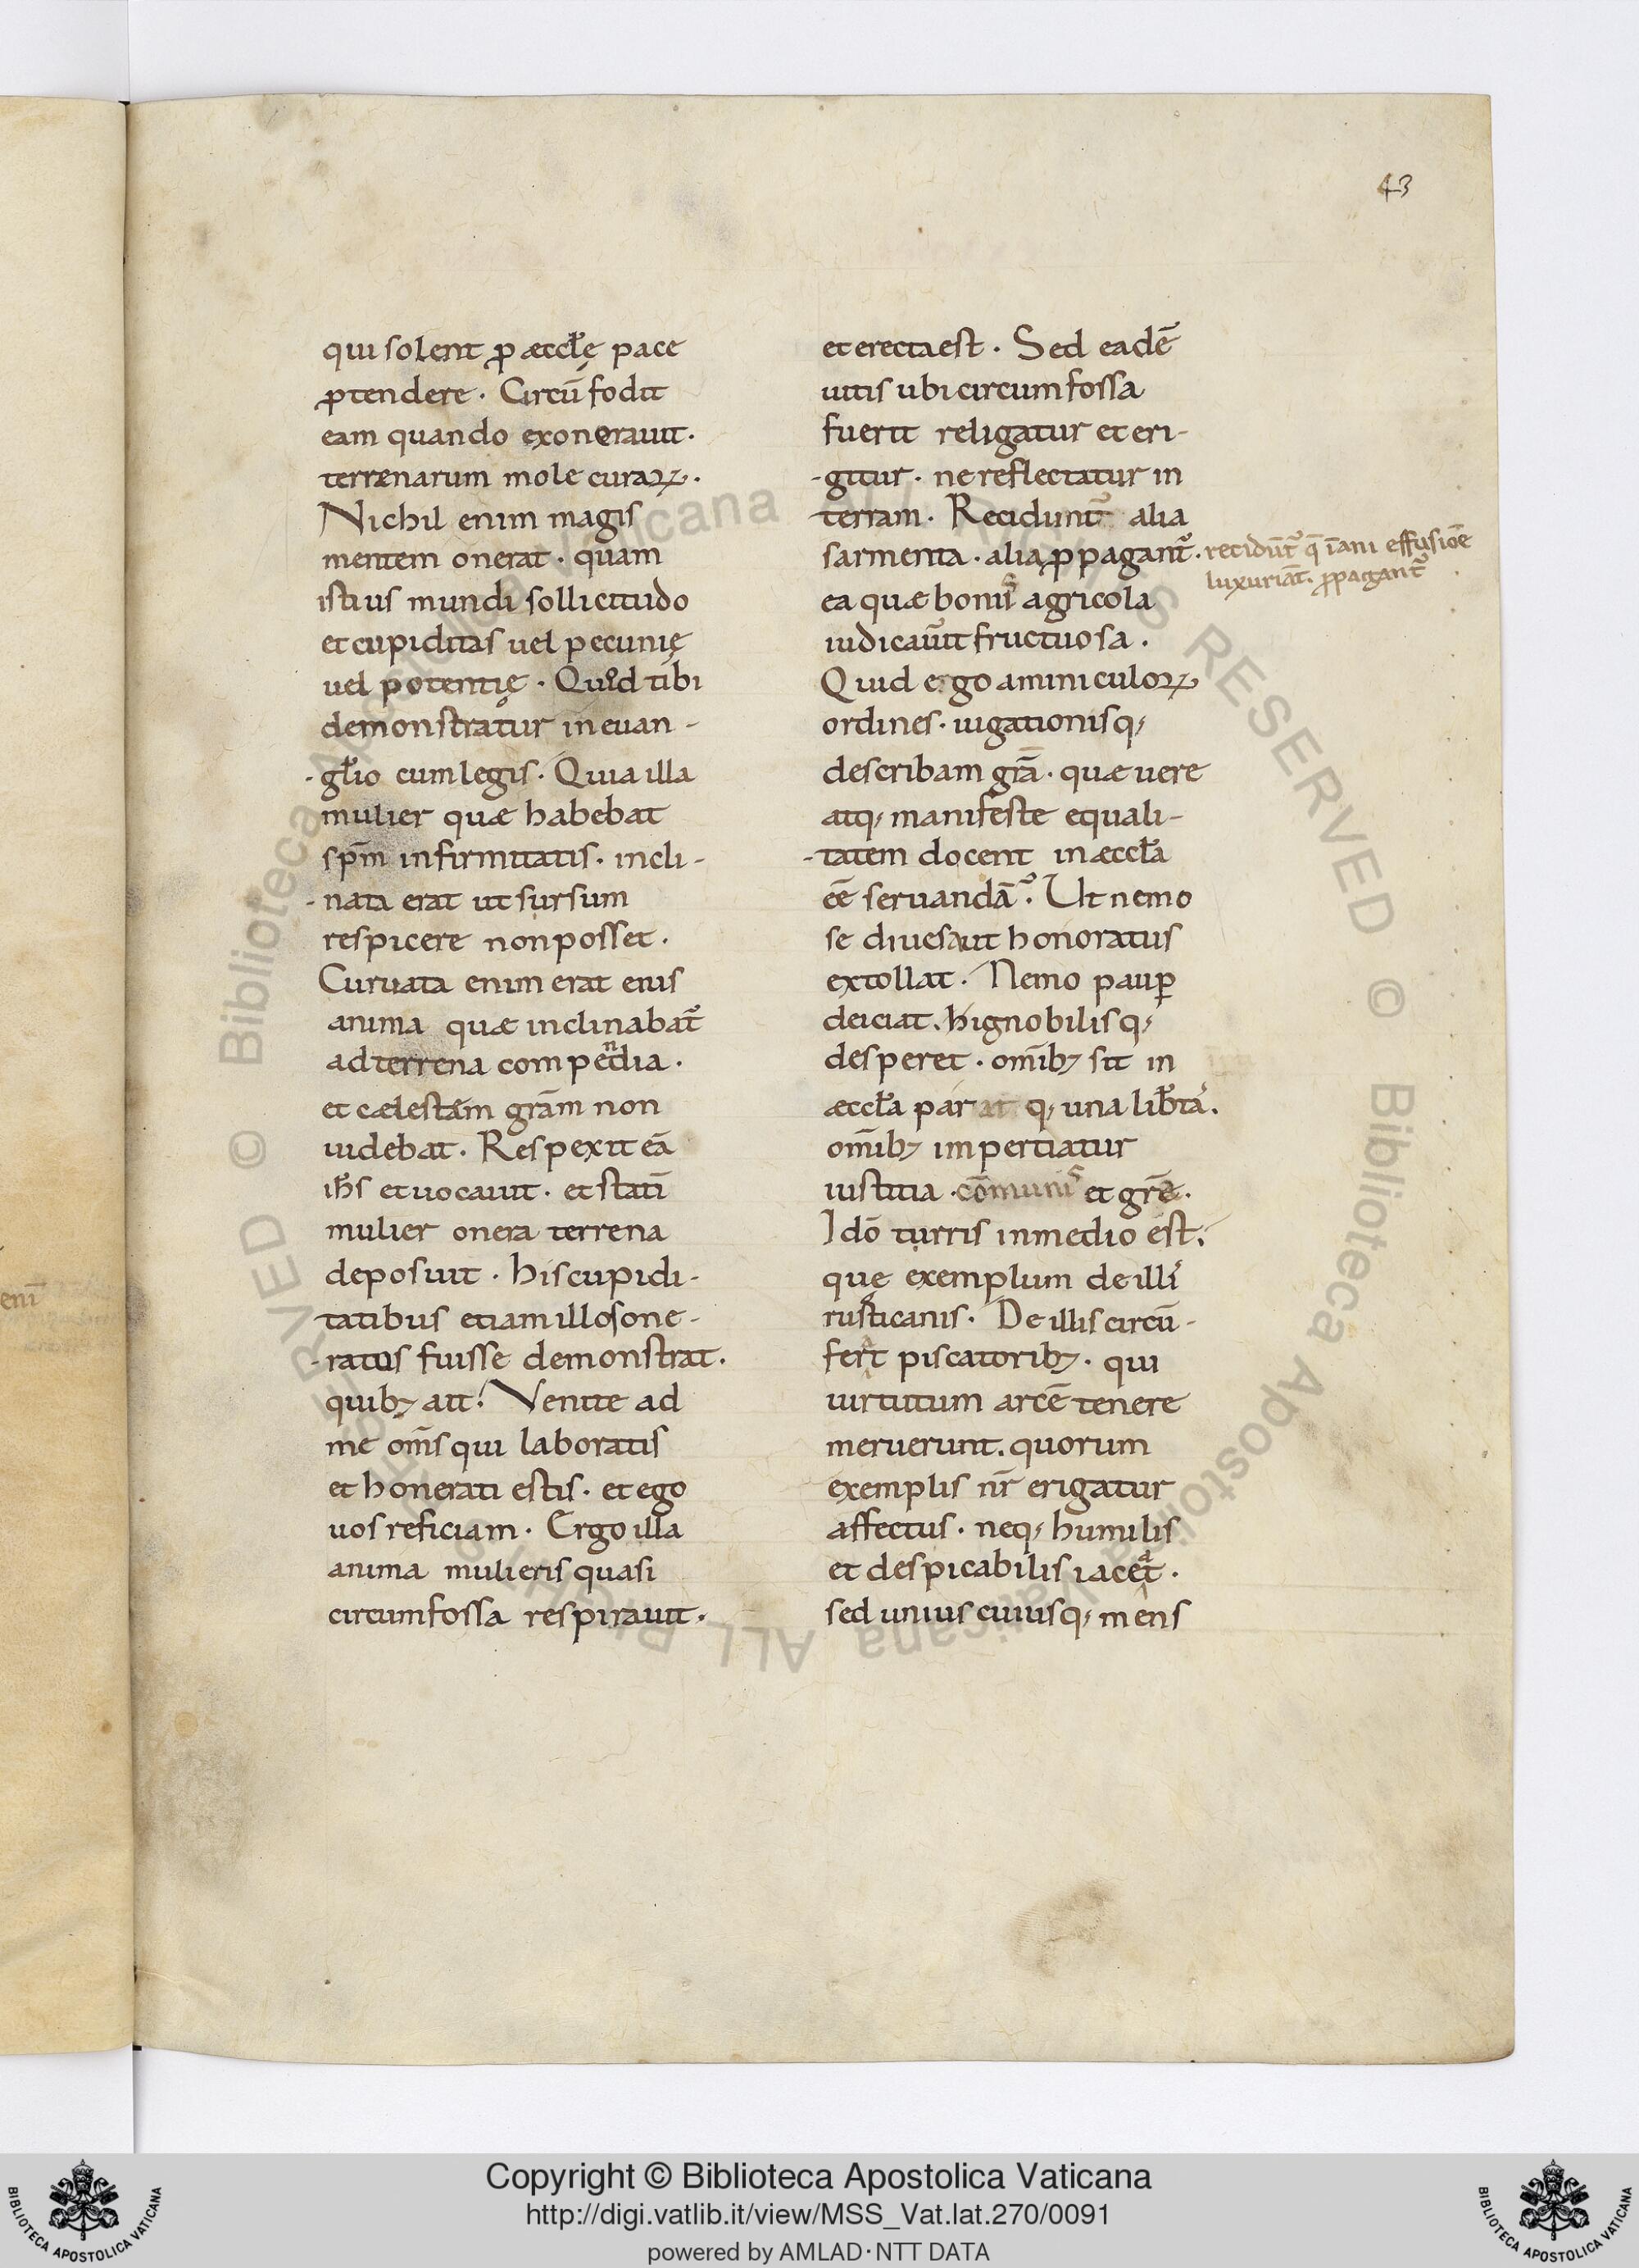 43
qui solent ꝓ æccl̃ę pace
ꝓtendere · Circũ fodit
eam quando exonerauit ·
terrænarum mole curaꝝ ·
Nichil enim magis
mentem onerat · quam
istius mundi sollicitudo
et cupiditas uel pecunię
uel potentię · Quod tibi
demonstratur in euan-
-gl̃io cum legis · Quia illa
mulier quæ habebat
sp̃m infirmitatis · incli-
-nata erat ut sursum
respicere non posset ·
Curuata enim erat eius
anima quæ inclinabat᷑
ad terrena compendia ·
et cælestem gr̃am non
uidebat · Respexit eã
ih̃s et uocauit · et statĩ
mulier onera terrena
deposuit · his cupidi-
tatibus etiam illos one-
-ratos fuisse demonstrat ·
quibꝫ ait · Venite ad
me om̃s qui laboratis
et honerati estis · et ego
uos reficiam · Ergo illa
anima mulieris quasi
circumfossa respirauit ·
et erecta est · Sed eadẽ
uitis ubi circumfossa
fuerit religatur et eri-
-gitur · ne reflectatur in
-terram · Recidunt᷑ alia
sarmenta · alia ꝓpagant᷑ ·
recidũt᷑ q̃ ĩani effusiõe
luxuriãt · ꝓpagant᷑
ea quæ bonus agricola
iudicauit fructuosa ·
Quid ergo aminiculoꝝ
ordines · iugationisq;
describam gr̃ã · quæ uere
atq; manifeste equali-
-tatem docent in æccl̃a
eẽ seruandã · Ut nemo
se diues aut honoratus
extollat · Nemo pauꝑ
deiciat · hignobilisq;
desperet · om̃ibꝫ sit in
æccl̃a par at q; una lib̃tas ·
om̃ibꝫ impertiatur
iustitia · cõmunis et gr̃e ·
Idõ turris in medio est ·
quę exemplum de illis
rusticanis · De illis circũ-
fert piscatoribꝫ · qui
uirtutum arcẽ tenere
meruerunt · quorum
exemplis nr̃ erigatur
affectus · neq; humilis
et despicabilis iaceat ·
sed unius cuiusq; mens
enĩ
© Biblioteca Apostolica Vaticana ALL RIGHTS RESERVED © Biblioteca Apostolica Vaticana ALL RIGHTS RESERVED
Copyright © Biblioteca Apostolica Vaticana
http://digi.vatlib.it/view/MSS_Vat.lat.270/0091
powered by AMLAD·NTT DATA
BIBLIOTECA APOSTOLICA VATICANA
BIBLIOTECA APOSTOLICA VATICANA